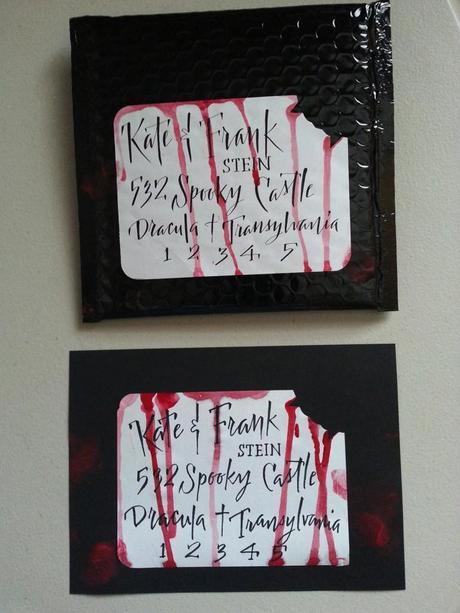 Kate & Frank
STEIN
532 Spooky Castle
Dracula + Transylvania
1 2 3 4 5
Kate & Frank
STEIN
532 Spooky Castle
Dracula + Transylvania
1 2 3 4 5